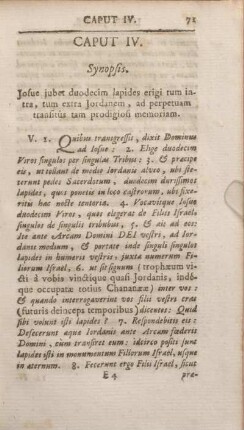 CAPUT IV. 71
CAPUT IV.
Synopsis.
Josue jubet duodecim lapides erigi tum in-
tra, tum extra Jordanem, ad perpetuam
transitûs tam prodigiosi memoriam.
V. 1. Quibus transgressis, dixit Dominus
ad Josue: 2. Elige duodecim
Viros singulos per singulas Tribus: 3. & præcipe
eis, ut tollant de medio Jordanis alveo, ubi ste-
terunt pedes Sacerdotum, duodecim durissimos
lapides, quos ponetis in loco castrorum, ubi fixe-
ritis hac nocte tentoria. 4. Vocavitque Josue
duodecim Viros, quos elegerat de Filiis Israël
singulos de singulis tribubus, 5. & ait ad eos:
Ite ante Arcam Domini DEI vestri, ad Jor-
danis medium, & portate inde singuli singulos
lapides in humeris vestris, juxta numerum Fi-
liorum Israël, 6. ut sit signum (trophæum vi-
cti à vobis vinctique quasi Jordanis, indé-
que occupatæ totius Chananææ) inter vos:
& quando interrogaverint vos filii vestri cras
(futuris deinceps temporibus) dicentes: Quid
sibi volunt isti lapides? 7. Respondebitis eis:
Defecerunt aquæ Jordanis ante Arcam fœderis
Domini, cùm transiret eum: idcirco positi sunt
lapides isti in monumentum Filiorum Israël, usque
in æternum. 8. Fecerunt ergo Filii Israël, sicut
E 4 præ-